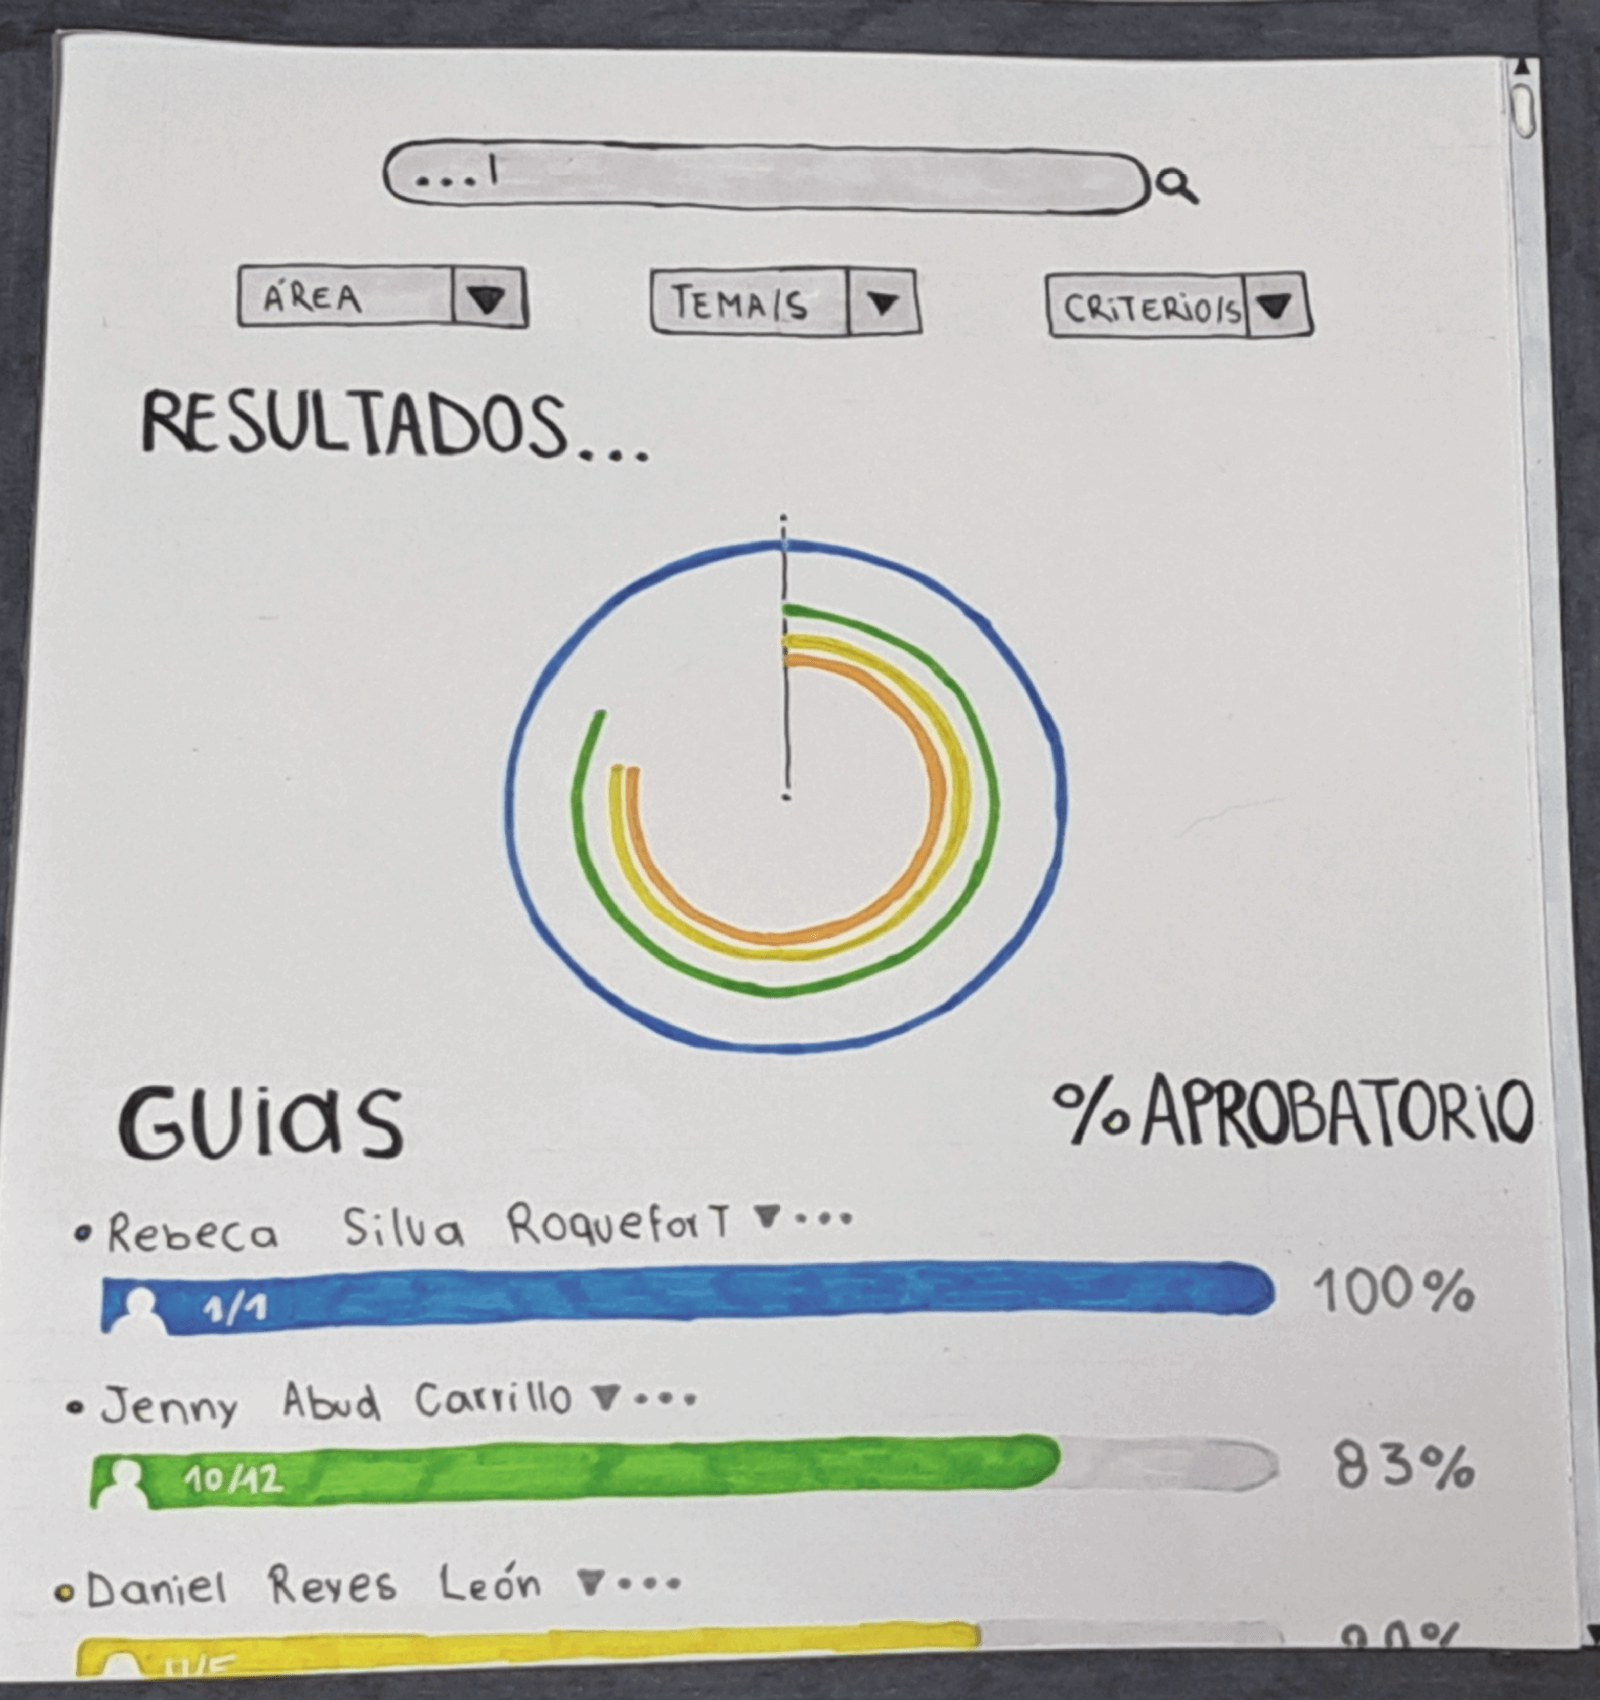 ...|
ÁREA
TEMA/S
CRITERIO/S
RESULTADOS...
GUiaS
% APROBATORIO
• Rebeca Silva Roquefort ...
1/1
100%
• Jenny Abud Carrillo ...
10/12
83%
• Daniel Reyes León ...